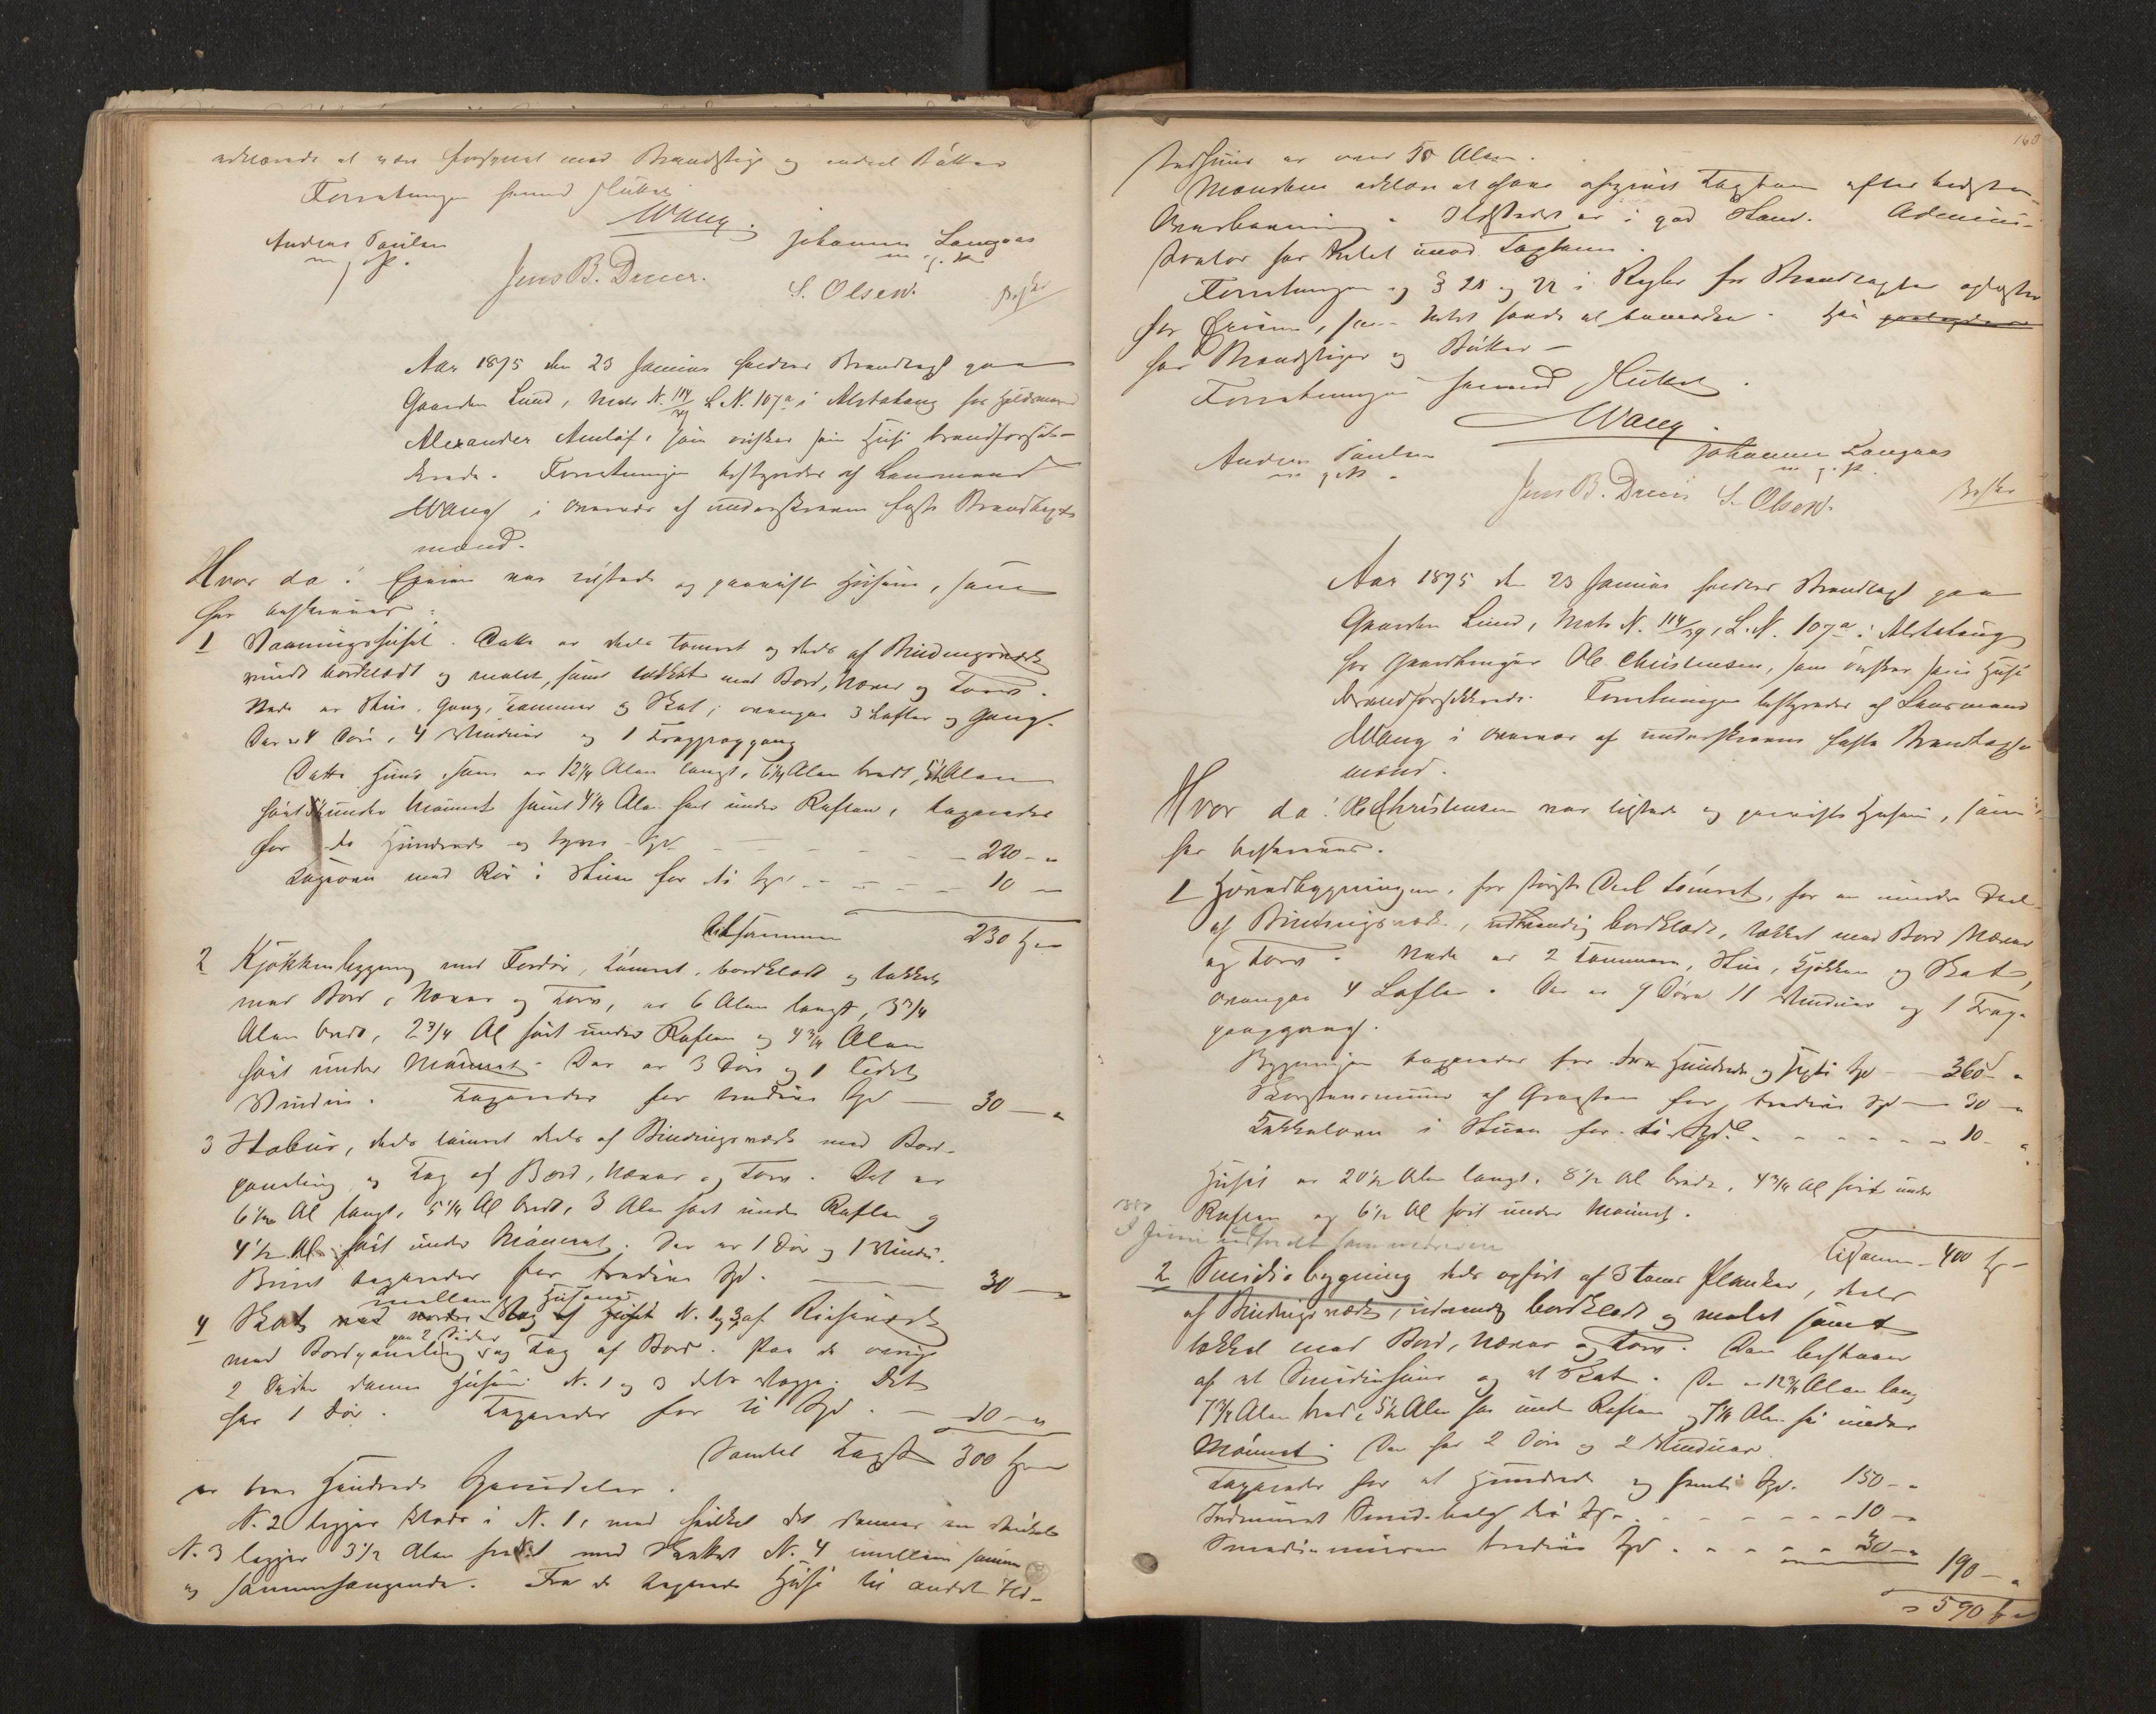 erklærede at være forsynet med Brandstige og endeel Bøtter
Forretningen hermed sluttet
Wang.
Anders Paulsen Johannes Langaas
m. p. P. m. p. P.
Jens B. Drines. S. Olsen.
Aar 1875 den 23 Januar holdtes Brandtaxt paa
Gaarden Lund, Matr N. 114/29 L. N. 107a i Alstahaug for Huusmand
Alexander Amlöf, som ønsker sin Huse brandforsik-
krede. Forretningen bestyredes af Lensmand
Wang i Overvær af underskrevne faste Brandtaxt
mænd.
Hvor da: Eieren var tilstede og paaviste Husene, som
her beskrives:
1 Vaaningshuset. Dette er dels tømret og dels af Bindingsværk
rundt bordklædt og malet, samt tækket med Bord, Næver og Torv.
Nede er Stue, Gang, Kammer og Skot; ovenpaa 3 Lofter og Gang.
Der er 4 Døre, 4 Vinduer og 1 Trappegang
Dette Huus, som er 12 1/4 Alen langt, 6 1/4 Alen bredt, 5 1/2 Alen
høit under Mønnet samt 4 1/4 Alen høit under Raften, taxeredes
for to Hundrede og tyve Spd - - - - 220 - "
Kogeovn med Rør i Stuen for ti Spd. - - - - 10 -
Tilsammen 230 Spd
2 Kjøkkenbygning med Fordør, tømret, bordklædt og tækket
med Bord, Næver og Torv, er 6 Alen langt, 3 3/4
Alen bredt, 2 3/4 Al høit under Raften og 4 3/4 Alen
høit under Mønnet. Der er 3 Døre og 1 lidet
Vindue. Taxeredes for tredive Spd — 30 — "
3 Stabur, dels tømret dels af Bindingsværk med Bord-
paneling og Tag af Bord, Næver og Torv. Det er
6 1/2 Al langt, 5 1/4 Al bredt, 3 Alen høit under Raften og
4 1/2 Al høit under Mønnet. Der er 1 Dør og 1 Vindue.
Buret taxeredes for tredive Spd. — 30 — "
mellem Husene
4 Skot ved Væg af Huset N. 1 og 3 af Reisværk
paa 2 Sider
med Bordpaneling og Tag af Bord. Paa de øvrige
2 Sider danner Husene N. 1 og 3 dets Vægge. Det
har 1 Dør. Taxeredes for ti Spd. — 10 — "
Samlet Taxt 300 Spd
er tre Hundrede Speciedaler.
N. 2 ligger klods i N. 1, med hvilket det danner en Vinkel
N. 3 ligger 3 1/2 Alen fra det med Skottet N. 4 imellem samme
og sammenhængende. Fra de taxerede Huse til andet Ild-
160
Indhuus er over 50 Alen.
Mændene erklære at have afgivet Taxten efter bedste
Overbeviisning. Ildstedet er i god Stand. Admini-
strator har Intet imod Taxten.
Forretningen og § 21 og 22 i Regler for Brandtaxter oplæstes
for Eieren, som Intet havde at bemærke. Han
har Brandstiger og Bøtter -
Forretningen hermed sluttet.
Wang.
Anders Paulsen Johannes Langaas
m. p. P. m. p. P.
Jens B. Drines S. Olsen.
Aar 1875 den 23 Januar holdtes Brandtaxt paa
Gaarden Lund, Matr N. 114/29, L. N. 107a i Alstahaug
for Gaardbruger Ole Christensen, som ønsker sine Huse
brandforsikkrede. Forretningen bestyredes af Lensmand
Wang i Overvær af underskrevne faste Brandtaxt-
mænd.
Hvor da: Ole Christensen var tilstede og paaviste Husene, som
her beskrives.
1 Hovedbygningen, for største Deel tømret, for en mindre Deel
af Bindingsværk, udvendig bordklædt, tækket med Bord Næver
og Torv. Nede er 2 Kammere, Stue, Kjøkken og Skot,
ovenpaa 4 Lofter. Der er 9 Døre 11 Vinduer og 1 Trap-
peopgang.
Bygningen taxeredes for tre Hundrede og sexti Spd - 360 - "
Skorstensmuur af Graasten for tredive Spd — 30 - "
Kakkelovn i Stuen for ti Spd. - - - - 10 - "
Huset er 20 1/2 Alen langt, 8 1/2 Al bredt, 4 3/4 Al høit under
Raften og 6 1/2 Al høit under Mønnet.
Tilsammen - 400 Spd
2 Smidiebygning dels opført af 3 toms Planker, dels
af Bindingsværk, udvendig bordklædt og malet samt
tækket med Bord, Næver og Torv. Den bestaaer
af et Smidiehuus og et Skot. Den er 12 3/4 Alen lang
7 3/4 Alen bred, 5 1/2 Alen høi under Raften og 7 1/4 Alen høi under
Mønnet. Den har 2 Døre og 2 Vinduer.
Taxeredes for et Hundrede og femti Spd. 150 - "
Indmuret Smidiebelg ti Sp. - - - - 10 - "
Smediemuren tredive Spd - - - - 30 - "
190 - "
590 Sp